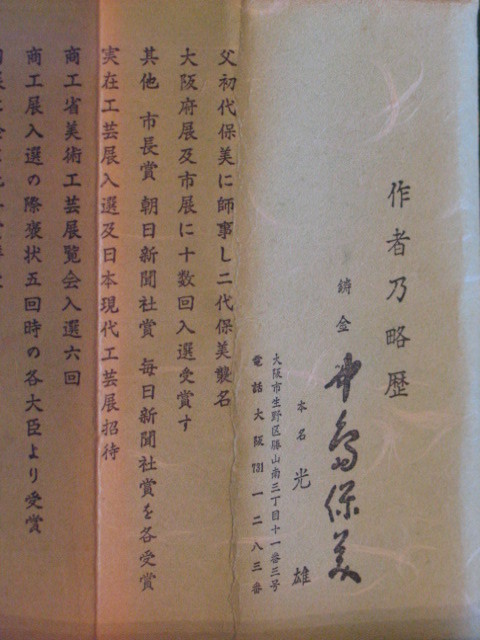 作者乃略歴
鋳金 中島保美
本名 光雄
大阪市生野区勝山南三丁目十一番三号
電話大阪731一二八三番
父初代保美に師事し二代保美襲名
大阪府展及市展に十数回入選受賞す
其他 市長賞 朝日新聞社賞 毎日新聞社賞を各受賞
実在工芸展入選及日本現代工芸展招待
商工省美術工芸展覧会入選六回
商工展入選の際褒状五回時の各大臣より受賞